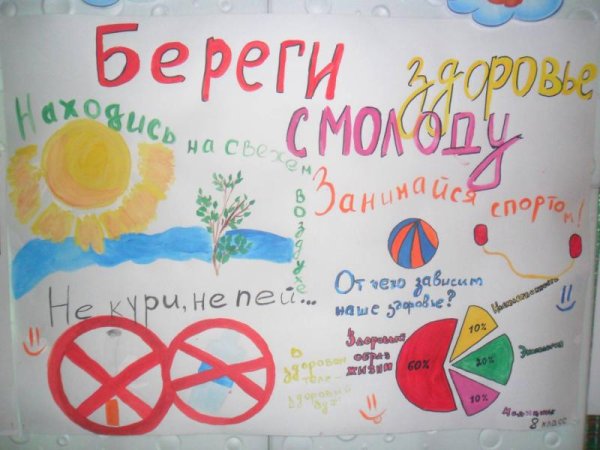 Береги здоровье
смолоду
Находись на свежем воздухе
Занимайся спортом!
Не кури, не пей...
От чего зависит
наше здоровье?
Здоровый
образ
жизни
60%
10%
20%
10%
Наследственность
Экология
Медицина
В
здоровом
теле -
здоровый
дух
8 класс